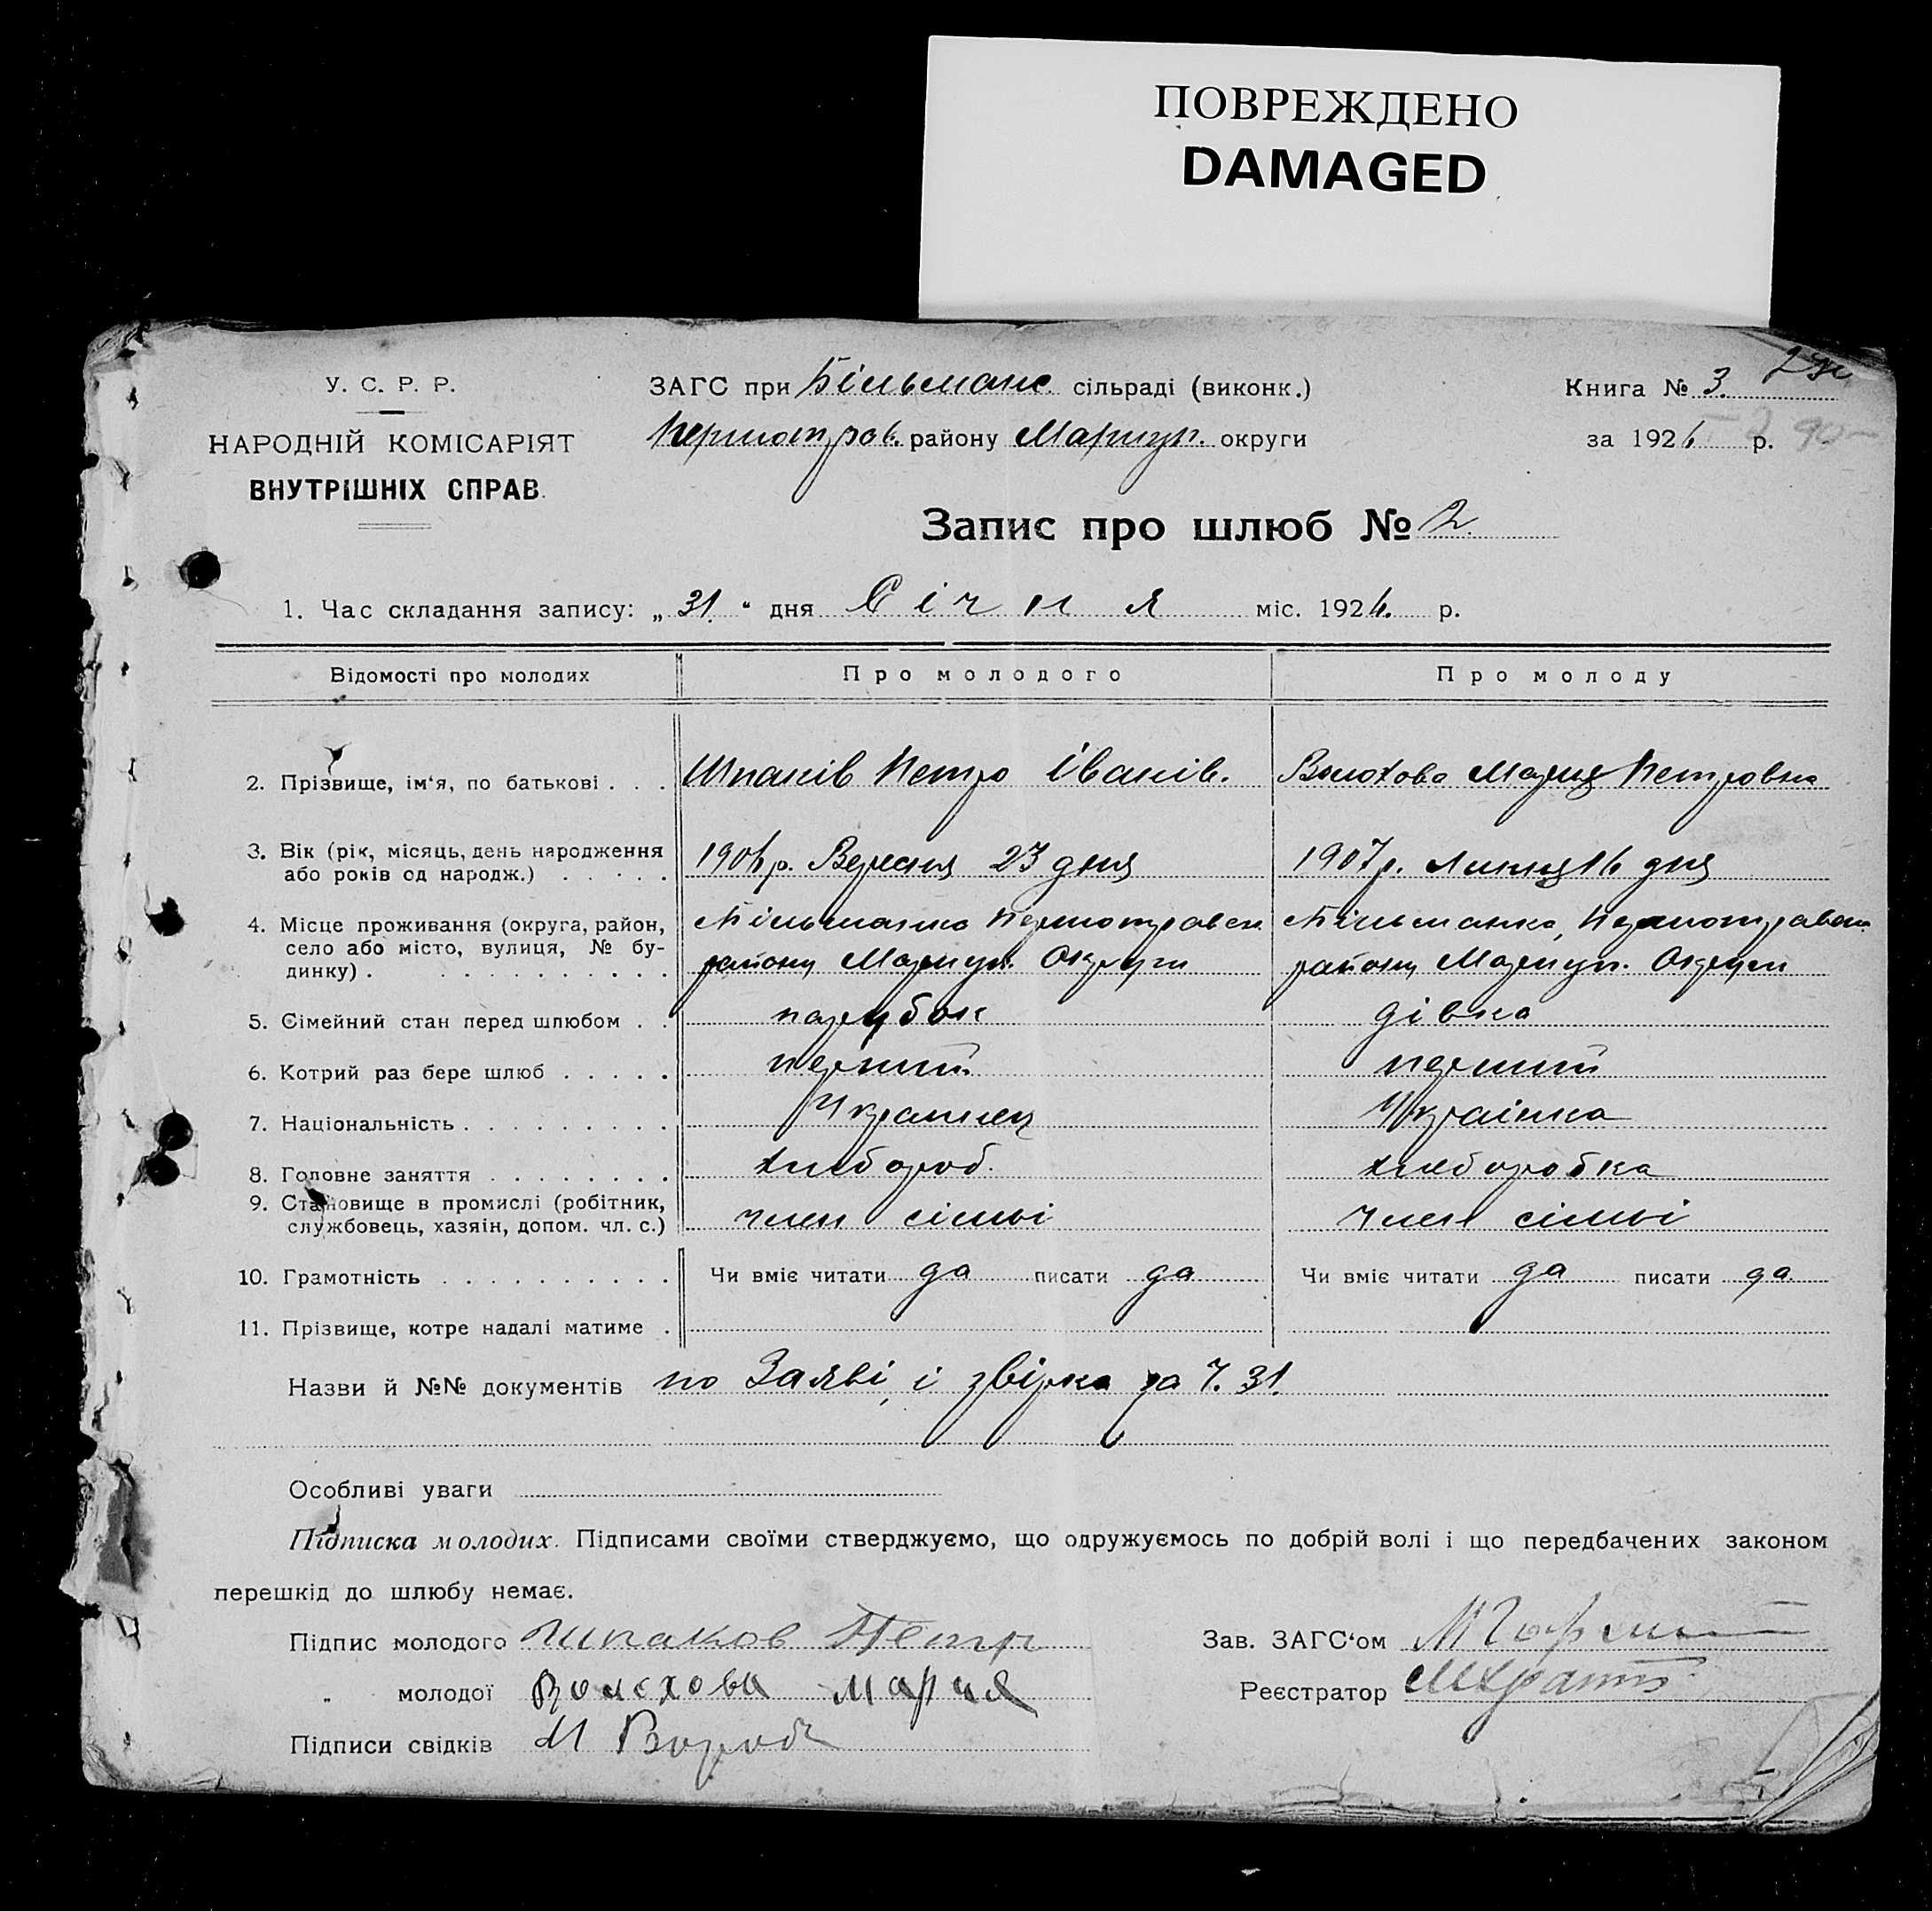 ПОВРЕЖДЕНО
DAMAGED
У. С. Р. Р.
НАРОДНІЙ КОМІСАРІЯТ
ВНУТРІШНІХ СПРАВ.
ЗАГС при Більманс. сільраді (виконк.)
Першотрав. району Маріуп. округи
Книга № 3.
за 1926 р.
Запис про шлюб № 2.
1. Час складання запису: „ 31. " дня Січня міс. 1926. р.
Відомості про молодих Про молодого Про молоду
2. Прізвище, ім'я, по батькові . . . Шпаків Петро Іванів. Волохова Мария Петровна
3. Вік (рік, місяць, день народження 1906 р. Вересня 23 дня 1907 р. Липня 16 дня
або років од народж.) . . . . .
4. Місце проживання (округа, район, Більманка Першотравен. Більманка, Першотравен.
село або місто, вулиця, № бу- району Мариуп. Округи району Мариуп. Округи
динку) . . . . . . . . . . .
5. Сімейний стан перед шлюбом . . парубок дівка
6. Котрий раз бере шлюб . . . . . перший перший
7. Національність . . . . . . . . . Украинец Украінка
8. Головне заняття . . . . . . . . хлебороб. хлеборобка
9. Становище в промислі (робітник, член сімьі член сімьі
службовець, хазяін, допом. чл. с.)
10. Грамотність . . . . . . . . . . Чи вміє читати да писати да Чи вміє читати да писати да
11. Прізвище, котре надалі матиме .
Назви й №№ документів по Заяві, і звірка за Ч. 31.
Особливі уваги
Підписка молодих. Підписами своїми стверджуємо, що одружуємось по добрій волі і що передбачених законом
перешкід до шлюбу немає.
Підпис молодого Шпаков Петр Зав. ЗАГС'ом
„ молодої Волохова Мария Реєстратор
Підписи свідків